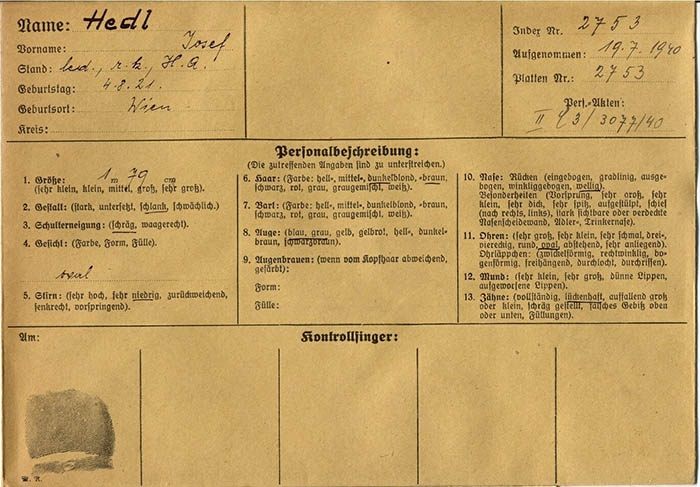 Name: Hedl
Vorname: Josef
Stand: led., r.k., H.A.
Geburtstag: 4.8.21.
Geburtsort: Wien
Kreis:
Index Nr. 2753
Aufgenommen: 19.7.1940
Platten Nr.: 2753
Pers.-Akten:
II 3/3077/40
Personalbeschreibung:
(Die zutreffenden Angaben sind zu unterstreichen.)
1. Größe: 1 m 79 cm
(sehr klein, klein, mittel, groß, sehr groß).
2. Gestalt: (stark, untersetzt, schlank, schwächlich.)
3. Schulterneigung: (schräg, waagerecht).
4. Gesicht: (Farbe, Form, Fülle).
oval
5. Stirn: (sehr hoch, sehr niedrig, zurückweichend,
senkrecht, vorspringend).
6. Haar: (Farbe: hell-, mittel-, dunkelblond, -braun,
schwarz, rot, grau, graugemischt, weiß).
7. Bart: (Farbe: hell-, mittel-, dunkelblond, -braun,
schwarz, rot, grau, graugemischt, weiß).
8. Auge: (blau, grau, gelb, gelbrot, hell-, dunkel-
braun, schwarzbraun).
9. Augenbrauen: (wenn vom Kopfhaar abweichend,
gefärbt):
Form:
Fülle:
10. Nase: Rücken (eingebogen, gradlinig, ausge-
bogen, winkliggebogen, wellig).
Besonderheiten (Vorsprung, sehr groß, sehr
klein, sehr dick, sehr spitz, aufgestülpt, schief
(nach rechts, links), stark sichtbare oder verdeckte
Nasenscheidewand, Adler-, Trinkernase).
11. Ohren: (sehr groß, sehr klein, sehr schmal, drei-,
viereckig, rund, oval, abstehend, sehr anliegend).
Ohrläppchen: (zwickelförmig, rechtwinklig, bo-
genförmig, freihängend, durchlocht, durchrissen).
12. Mund: (sehr klein, sehr groß, dünne Lippen,
aufgeworfene Lippen).
13. Zähne: (vollständig, lückenhaft, auffallend groß
oder klein, schräg gestellt, falsches Gebiß oben
oder unten, Füllungen).
Am:
Kontrollfinger: